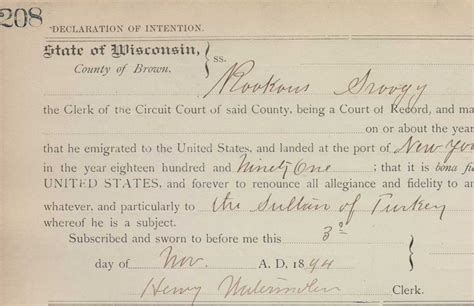 208
DECLARATION OF INTENTION.
State of Wisconsin,
County of Brown.
ss.
Rookous Sroogy
the Clerk of the Circuit Court of said County, being a Court of Record, and ma
on or about the year
that he emigrated to the United States, and landed at the port of New Yo
in the year eighteen hundred and Ninety One ; that it is bona fi
UNITED STATES, and forever to renounce all allegiance and fidelity to a
whatever, and particularly to the Sultan of Turkey
whereof he is a subject.
Subscribed and sworn to before me this 3d
day of Nov. A. D. 1894
Henry Clerk.